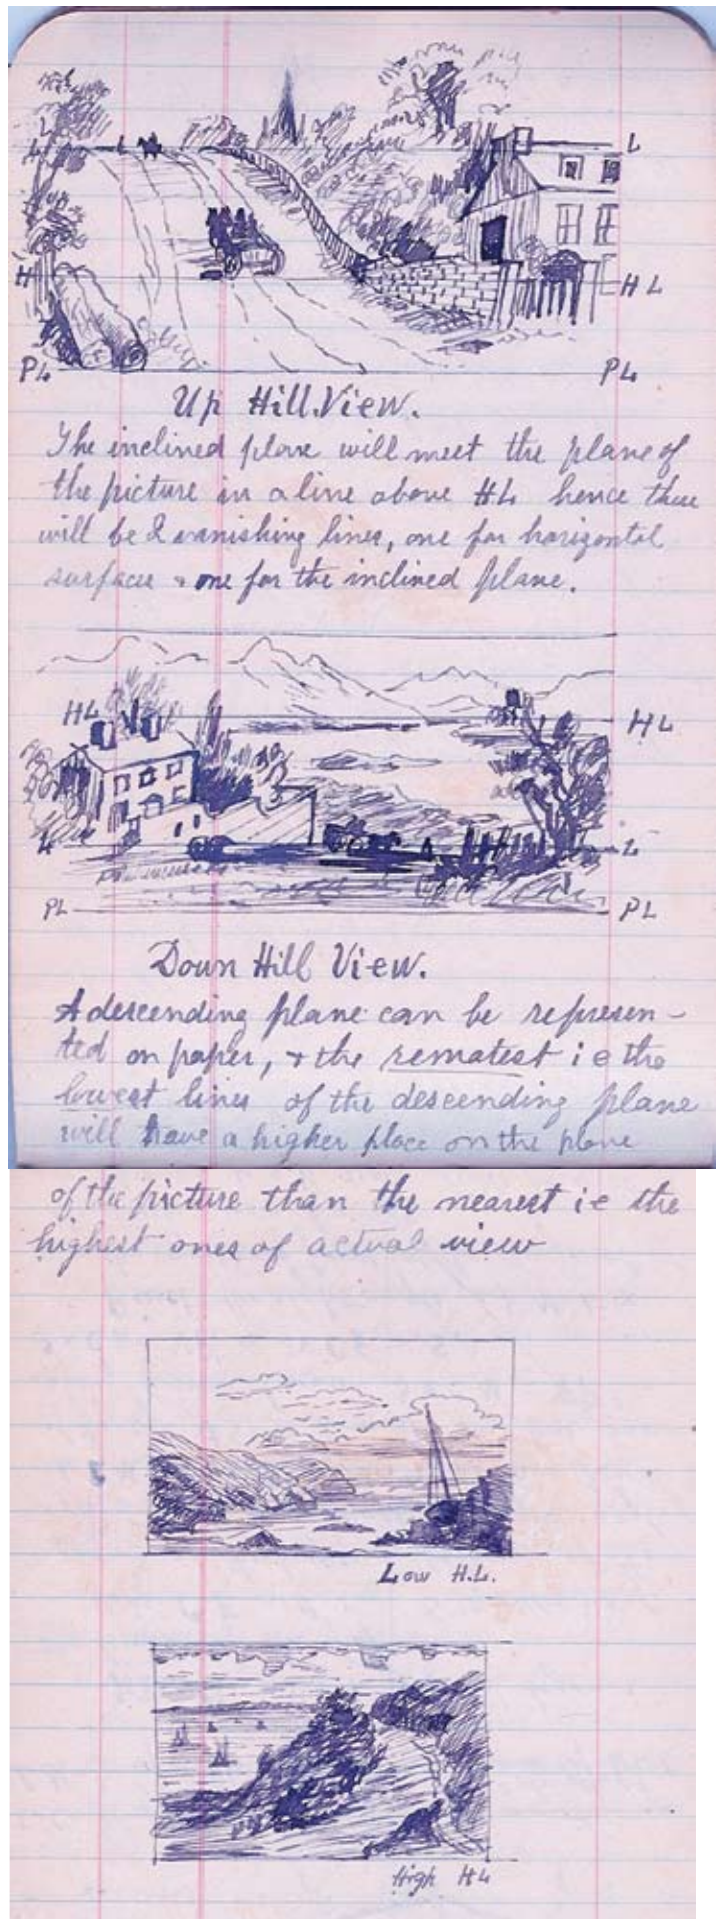 L L L
H HL
PL PL
Up Hill View.
The inclined plane will meet the plane of
the picture in a line above HL hence there
will be 2 vanishing lines, one for horizontal
surfaces & one for the inclined plane.
HL HL
L L
PL PL
Down Hill View.
A descending plane can be represen-
ted on paper, & the rematest i e the
lowest lines of the descending plane
will have a higher place on the plane
of the picture than the nearest i e the
highest ones of actual view
Low H.L.
High HL